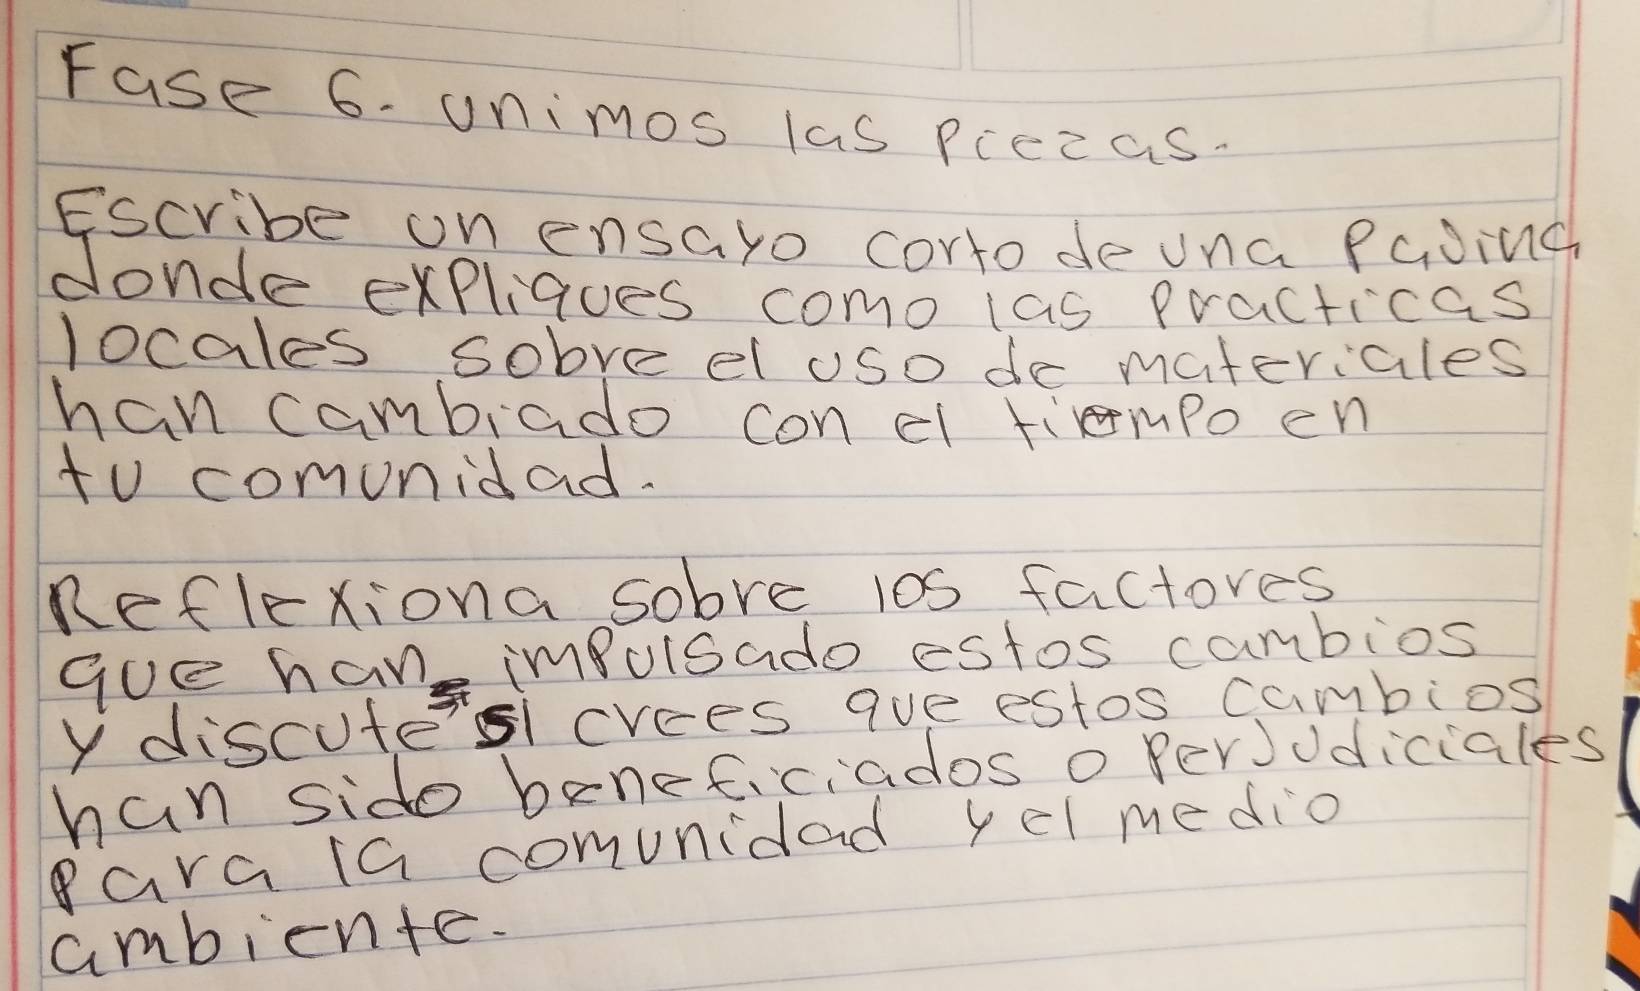 Fase 6. unimos las Piezas.
Escribe un ensayo corto de una Pagina
donde expliques como las Practicas
locales sobre el uso de materiales
han cambiado con el tiempo en
tu comunidad.
Reflexiona sobre los factores
que han impulsado estos cambios
y discute si crees que estos cambios
han sido beneficiados o Perjudiciales
Para la comunidad y el medio
ambiente.